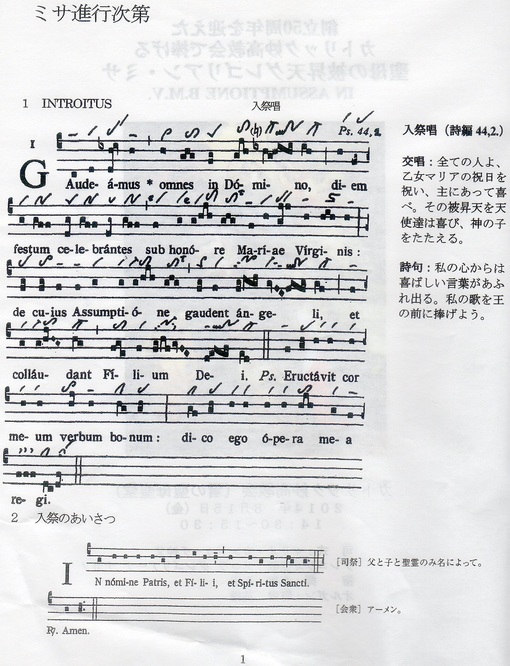 ミサ進行次第
1 INTROITUS 入祭唱
I
Ps. 44, 2.
GAude- á-mus * omnes in Dó- mi- no, di- em
festum ce-le- brántes sub honó- re Ma-rí-ae Vírgi- nis :
de cu-ius Assumpti- ó- ne gaudent án- ge- li, et
colláu- dant Fí- li- um De- i. Ps. Eructávit cor
me- um verbum bo-num : di- co ego ó-pe-ra me- a
re- gi.
入祭唱（詩編 44,2.）
交唱：全ての人よ、
乙女マリアの祝日を
祝い、主にあって喜
べ。その被昇天を天
使達は喜び、神の子
をたたえる。
詩句：私の心からは
喜ばしい言葉があふ
れ出る。私の歌を王
の前に捧げよう。
2 入祭のあいさつ
IN nómi-ne Patris, et Fí- li- i, et Spí- ri-tus Sancti.
[司祭] 父と子と聖霊のみ名によって。
℟. Amen.
[会衆] アーメン。
1
創立50周年を迎えた
カトリック妙高教会で捧げる
聖母の被昇天グレゴリアン・ミサ
IN ASSUMPTIONE B.M.V.